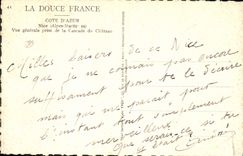 LA DOUCE FRANCE
COTE D'AZUR
Nice (Alpes-Marit. m)
Vue générale prise de la Cascade du Château
Milles baisers de ce Nice
que je ne connais pas encore
suffisament pour te le décrire
mais qui me parait pour
l'instant tout simplement
merveilleux
Que serait-ce si tu
était